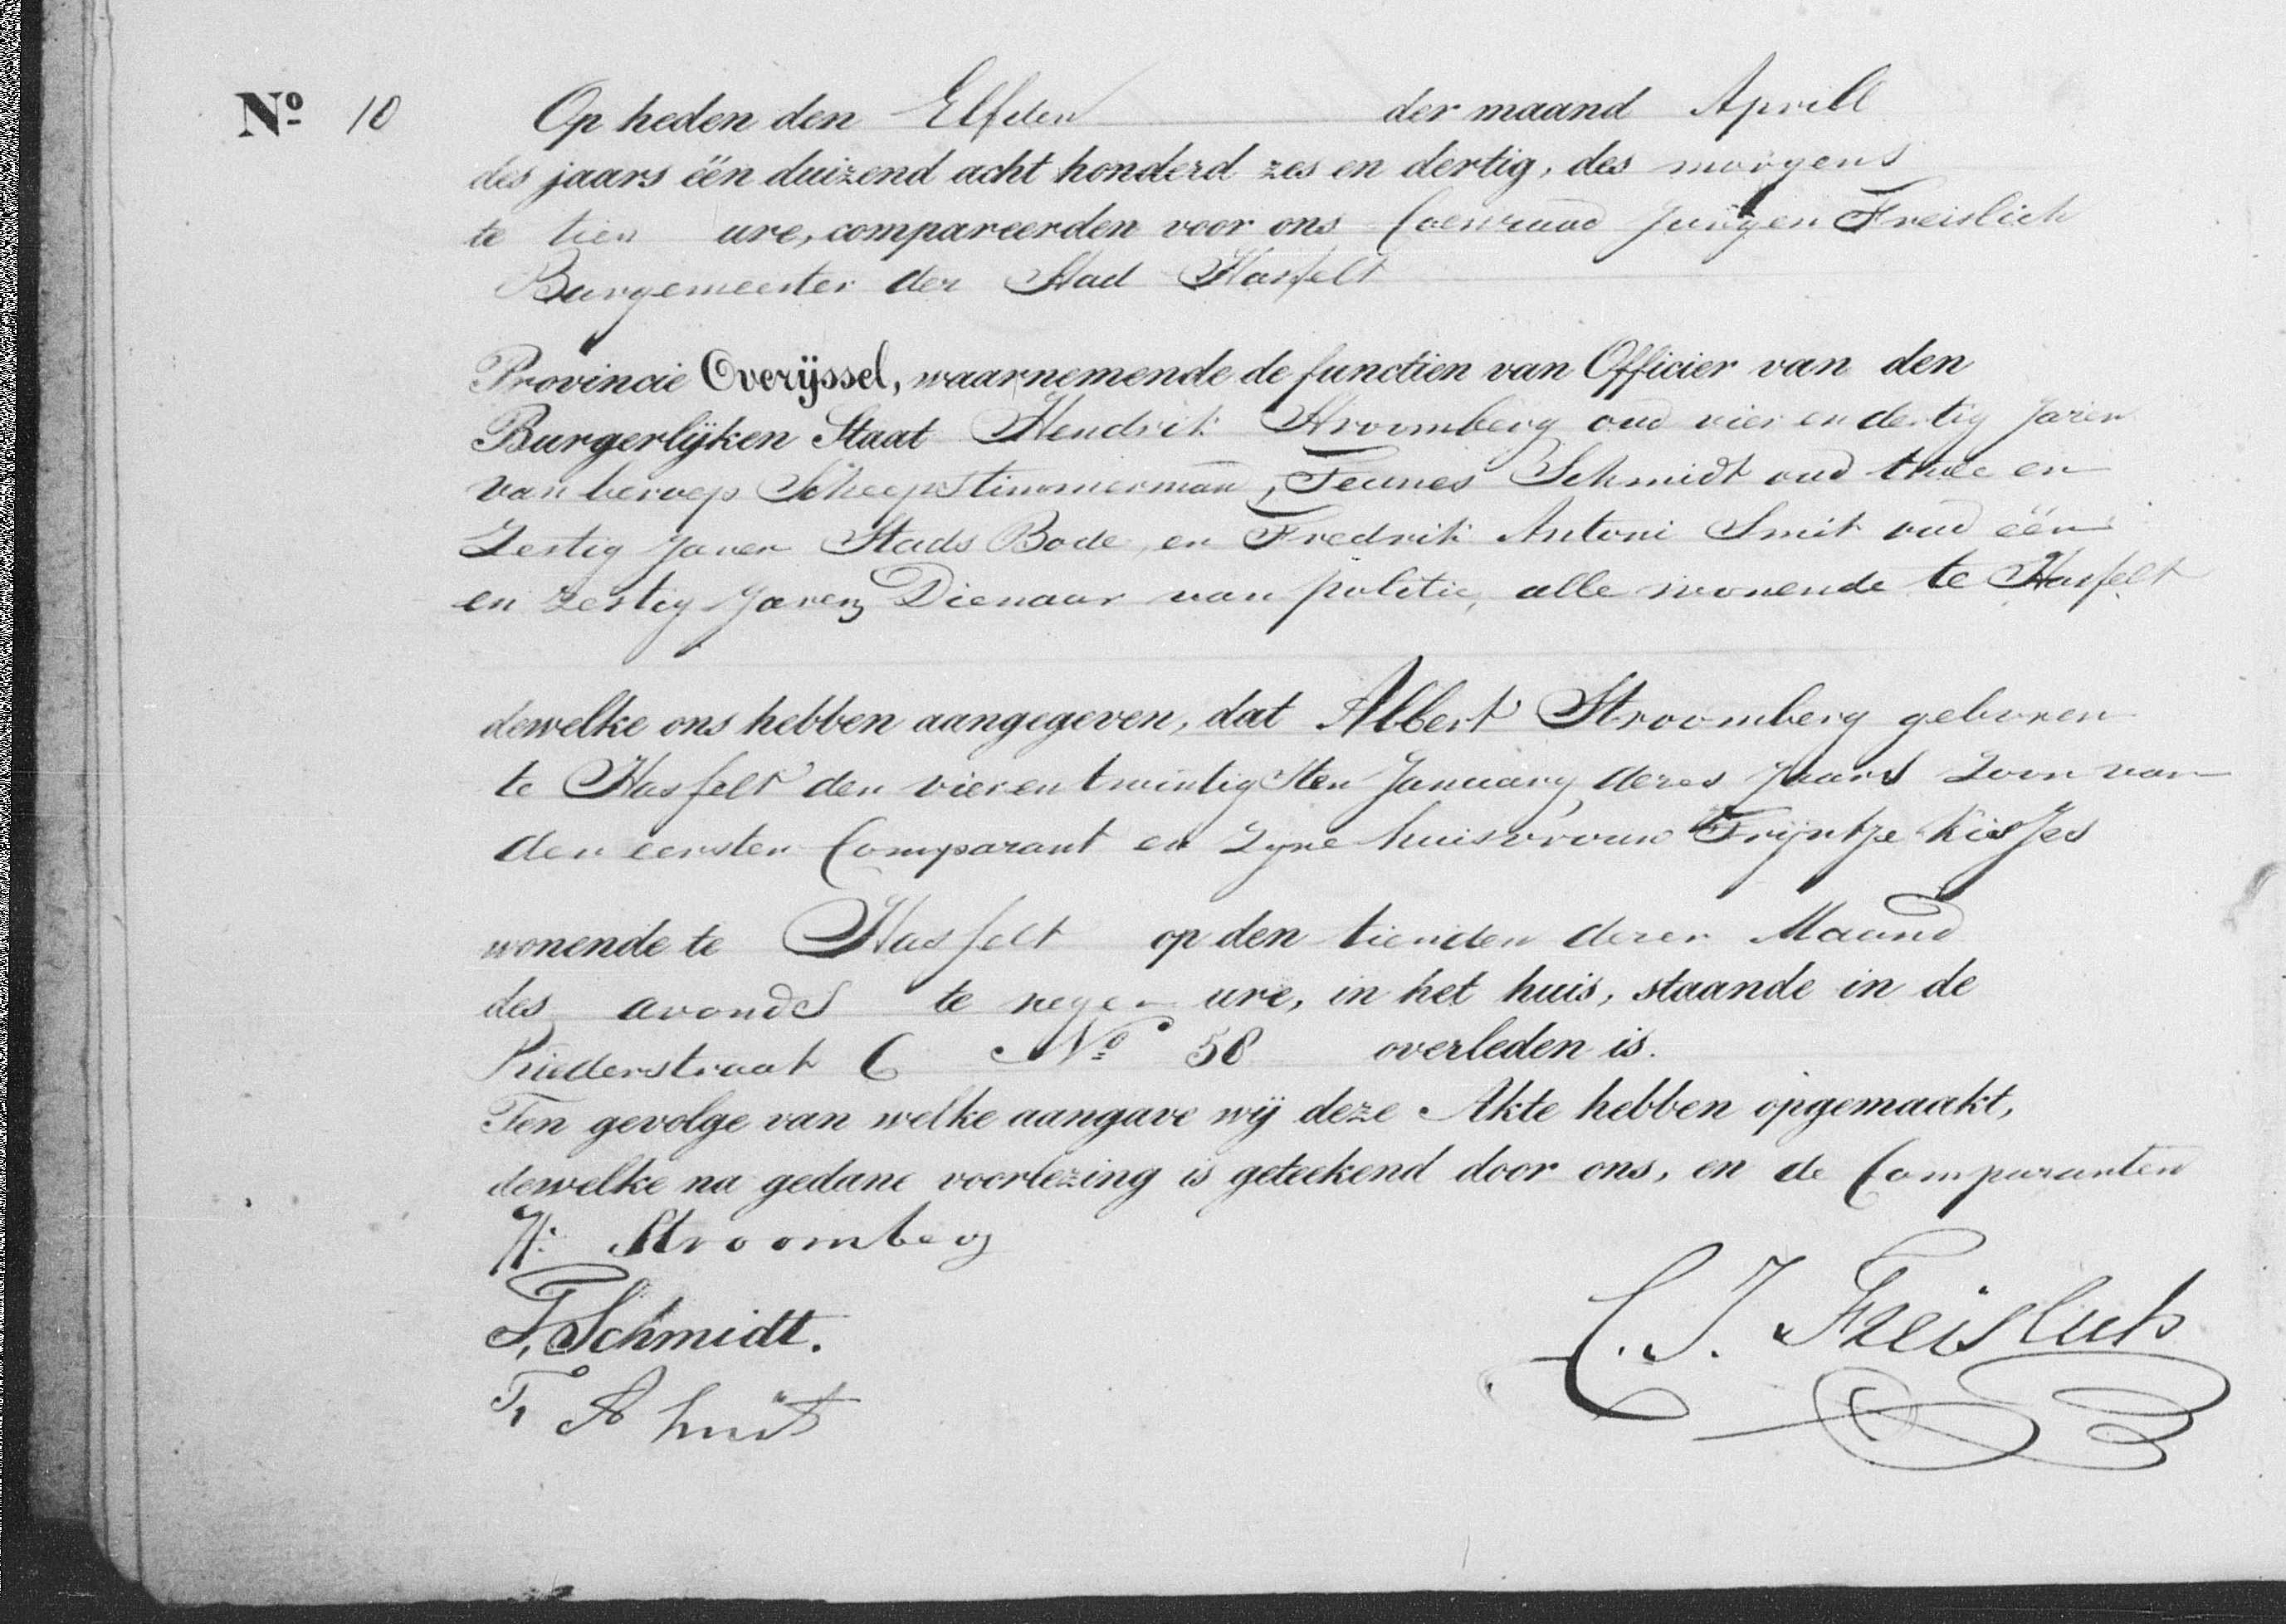 Nº 10 Op heden den Elfden der maand April
des jaars één duizend acht honderd zes en dertig, des morgens
te tien ure, compareerden voor ons Coenraad Jurgen Freislich
Burgemeester der Stad Hasselt
Provincie Overijssel, waarnemende de functien van Officier van den
Burgerlijken Staat Hendrik Stroomberg oud vier en dertig Jaren
van beroep Scheepstimmerman, Teunes Schmidt oud twee en
Zestig Jaren Stads Bode, en Fredrik Antoni Smit oud één
en zestig Jaren Dienaar van politie, alle wonende te Hasselt
dewelke ons hebben aangegeven, dat Albert Stroomberg geboren
te Hasselt den vierentwintigsten January dezes Jaars Zoon van
den eersten Comparant en Zyne huisvrouw Trijntje Kisjes
wonende te Hasselt op den tienden dezer Maand
des avonds te negen ure, in het huis, staande in de
Ridderstraat 6 Nº 58 overleden is.
Ten gevolge van welke aangave wij deze Akte hebben opgemaakt,
dewelke na gedane voorlezing is geteekend door ons, en de Comparanten
H: Stroomberg
T, Schmidt.
F, A Smit
C. J. Freislich